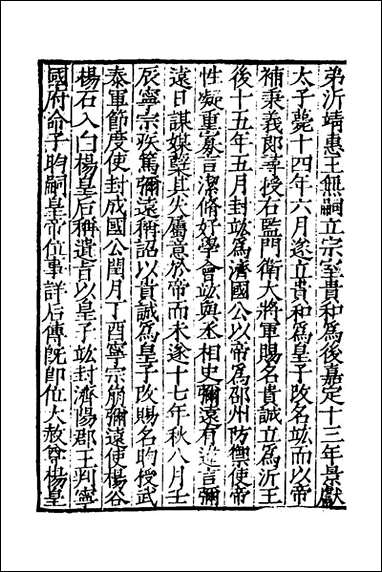 弟沂靖惠王無嗣立宗室貴和為後嘉定十三年景獻
太子薨十四年六月遂立貴和為皇子改名竑而以帝
補秉義郎尋授右監門衛大將軍賜名貴誠立為沂王
後十五年五月封竑為濟國公以帝為邵州防禦使帝
性凝重寡言潔脩好學會竑與丞相史彌遠有違言彌
遠日謀媒櫱其失屬意於帝而未遂十七年秋八月壬
辰寧宗疾篤彌遠稱詔以貴誠為皇子改賜名昀授武
泰軍節度使封成國公閏月丁酉寧宗崩彌遠使楊谷
楊石入白楊皇后稱遺旨以皇子竑封濟陽郡王判寧
國府命子昀嗣皇帝位事詳后傳旣即位大赦尊楊皇